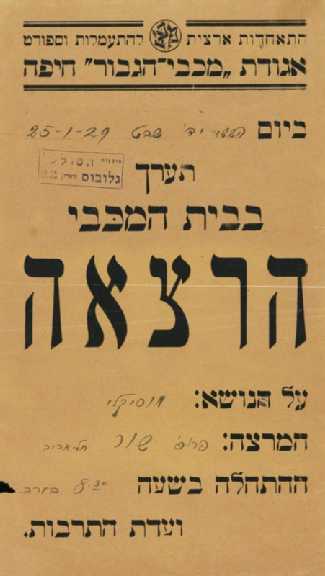 התאחדות ארצית להתעמלות וספורט
אגודת „מכבי־הגבור” חיפה
ביום י״ד שבט 25-1-29
תערך
גלובוס
בבית המכבי
הרצאה
על הנושא: מוסיקלי
המרצה: פרופ׳ שור תל־אביב
ההתחלה בשעה 8.30 בערב
ועדת התרבות.